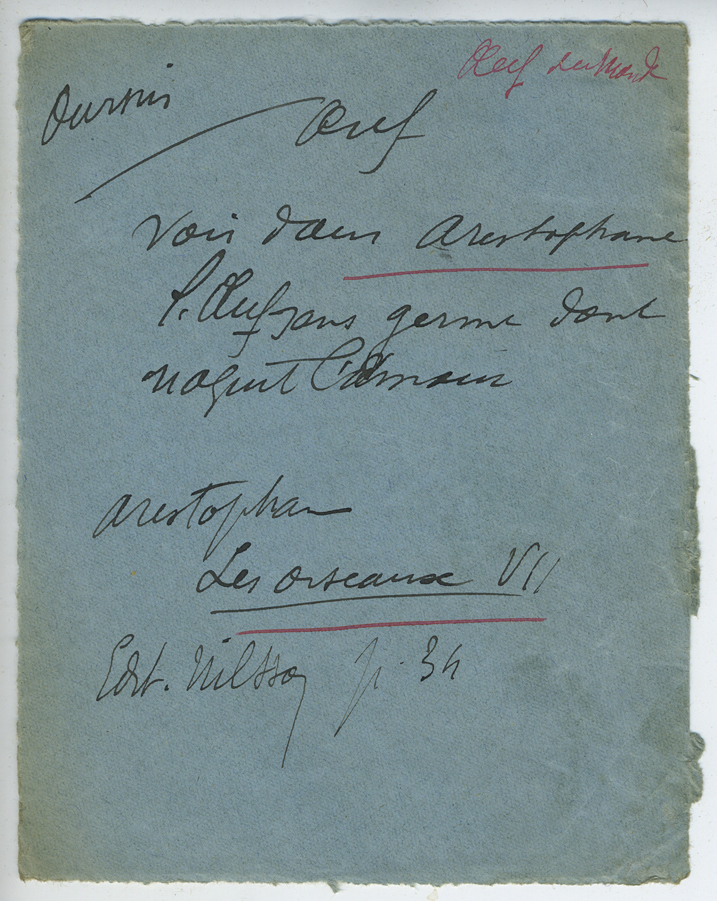 Œuf du Monde
Oursin
Œuf
Voir dans Aristophane
l'Œuf sans germe dont
naquit l'Amour
Aristophane
Les oiseaux VII
Edit. Nilsson p. 34